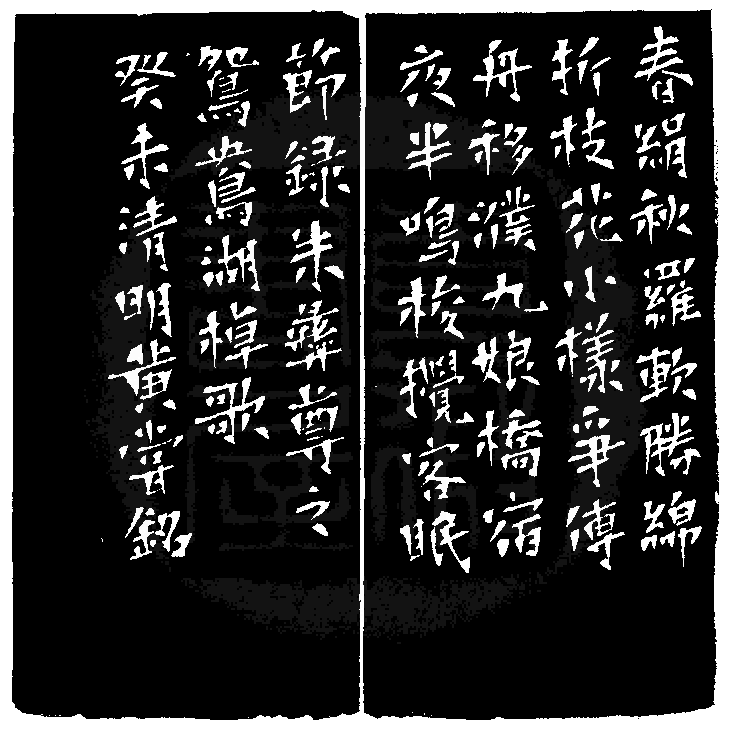 春絹秋羅軟勝綿
折枝花小樣爭傳
舟移濮九娘橋宿
夜半鳴梭攪客眠
節錄朱彝尊之
鴛鴦湖棹歌
癸未清明黃嘗銘